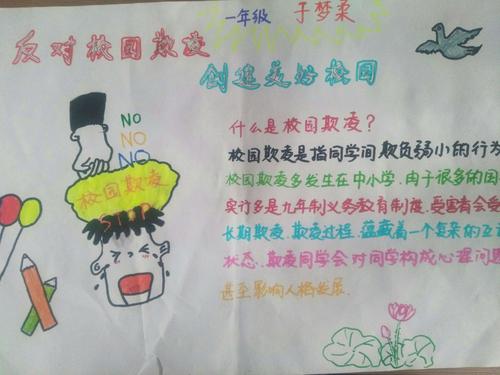 一年级 于梦柔
反对校园欺凌
创建美好校园
NO
NO
NO
校园欺凌
STOP
什么是校园欺凌？
校园欺凌是指同学间欺负弱小的行为
校园欺凌多发生在中小学.由于很多的国
实行多是九年制义务教育制度.受害者会受
长期欺凌.欺凌过程.蕴藏着一个复杂的互
状态.欺凌同学会对同学构成心理问
甚至影响人格发展.